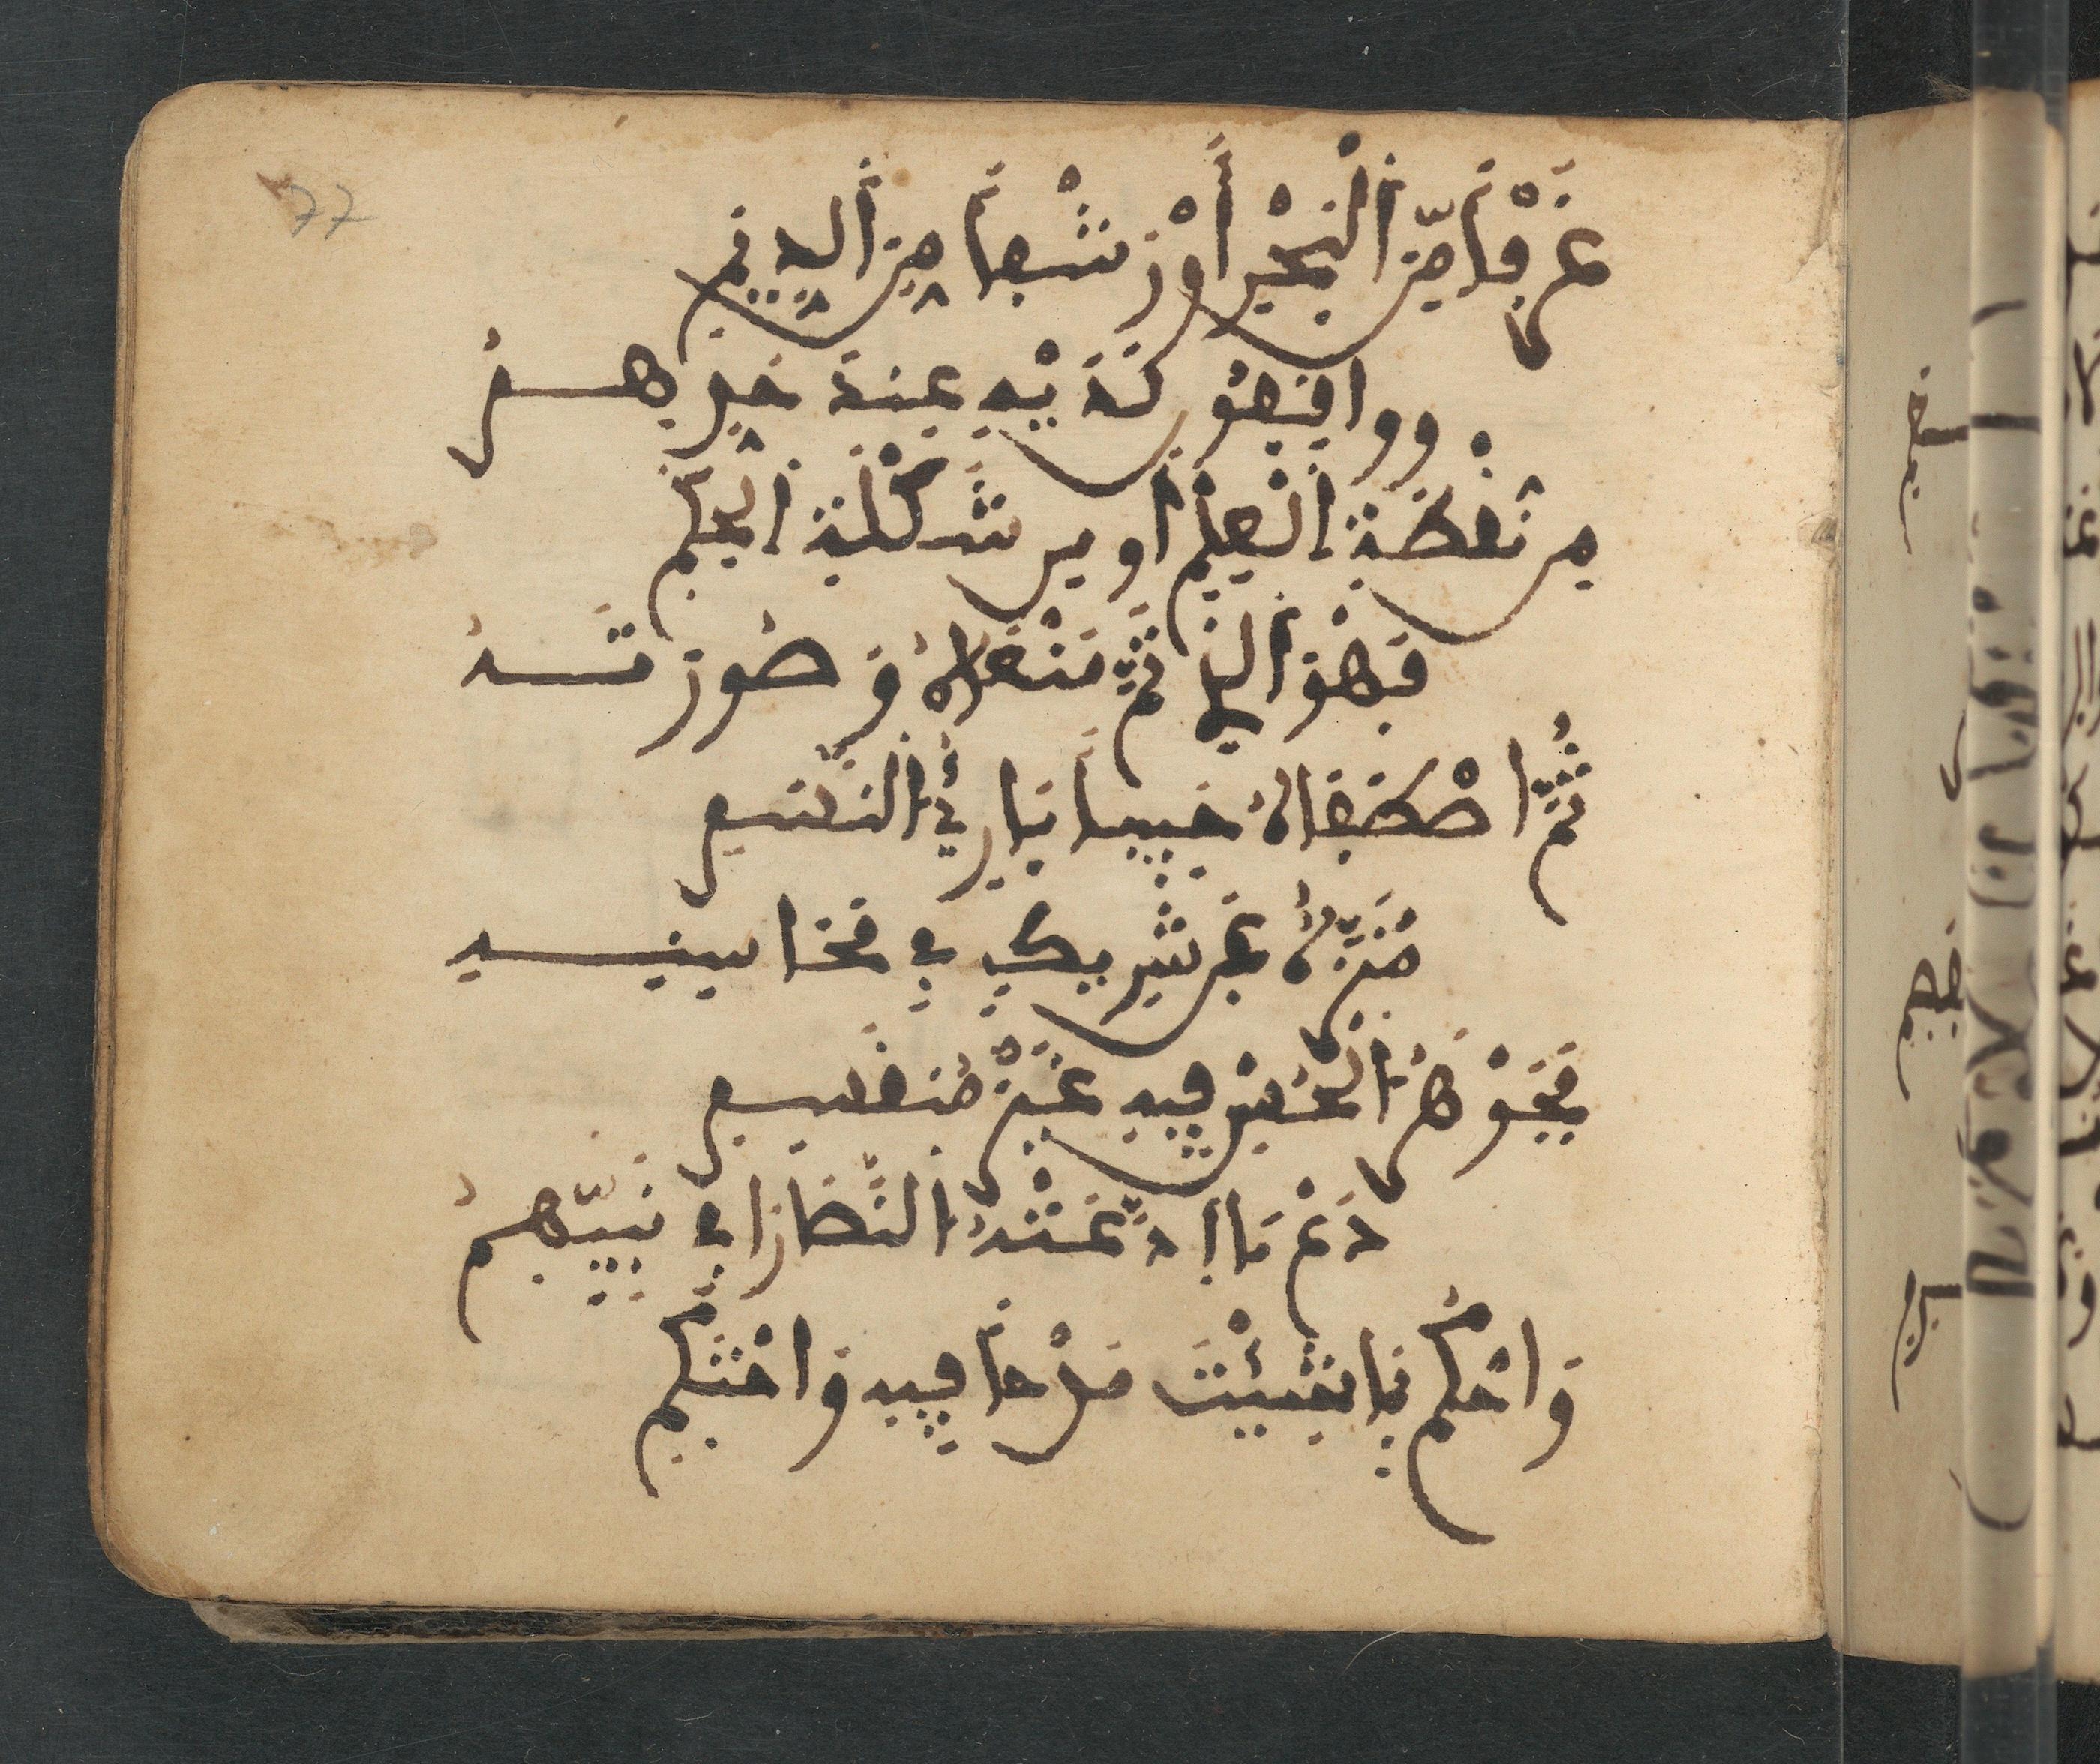 77
غَرْفاً مِّنَ ٱلْبَحْرِ أَوْ رَشْفاً مِنَ ٱلدِّيَمِ
وواقِفُونَ لَدَيْهِ عِندَ حَدِّهِمُ
مِن نُّقْطَةِ ٱلْعِلْمِ أو مِن شَكْلَةِ ٱلْحِكَمِ
فَهْوَ ٱلذِي تَمَّ مَعْنَاهُ وَصُورَتُهُ
ثُمَّ ٱصْطَفَاهُ حَبِيباً بَارِئُ ٱلنَّسَمِ
مُنَزَّهٌ عَن شَرِيكٍ فِي مَحَاسِنِهِ
فَجَوْهَرُ ٱلْحُسْنِ فِيهِ غَيْرُ مُنقَسِمِ
دَعْ مَا ٱدَّعَتْهُ ٱلنَّصَارَا فِي نَبِيِّهِمُ
وَٱحْكُم بِمَا شِئْتَ مَدْحاً فِيهِ وَٱحْتَكِمِ